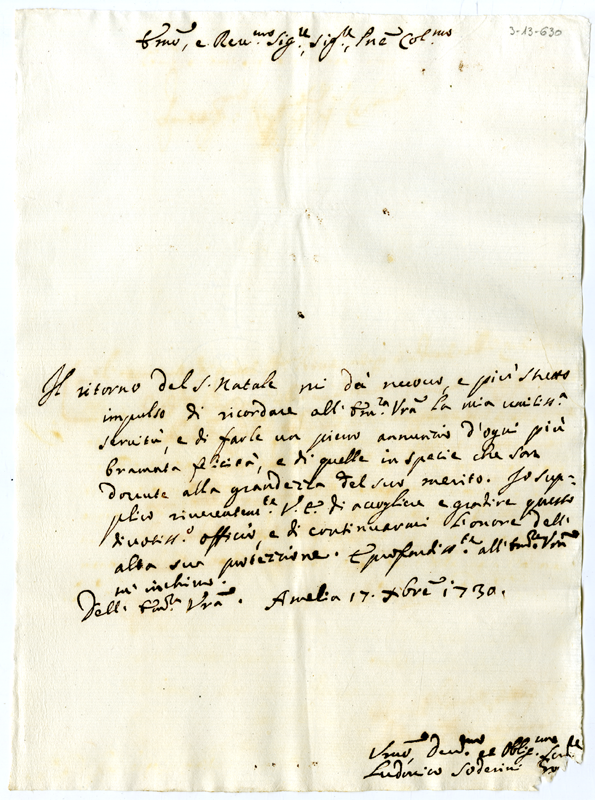 3-13-630
Emo, e Reu.mo Sig.re, Sig.re, Pnē Col.mo
Il ritorno del S. Natale mi dà nuouo, e più stretto
impulso di ricordare all'Em.za Vrā la mia umiliss.a
seruitù, e di farle un pieno annunzio d'ogni più
bramata felicità, e di quelle in specie che son
douute alla grandezza del suo merito. Io sup=
plico riuerentem.te V.E. di accogliere e gradire questo
diuotiss.o officio, e di continuarmi l'onore dell'
alta sua protezzione. E profondiss.te all'Em.za Vrā
mi inchino.
Dell' Em.za Vrā. Amelia 17. Xbrē 1730.
Vmo, Deu.mo et Oblig.mo Seru.re
Ludouico Soderini